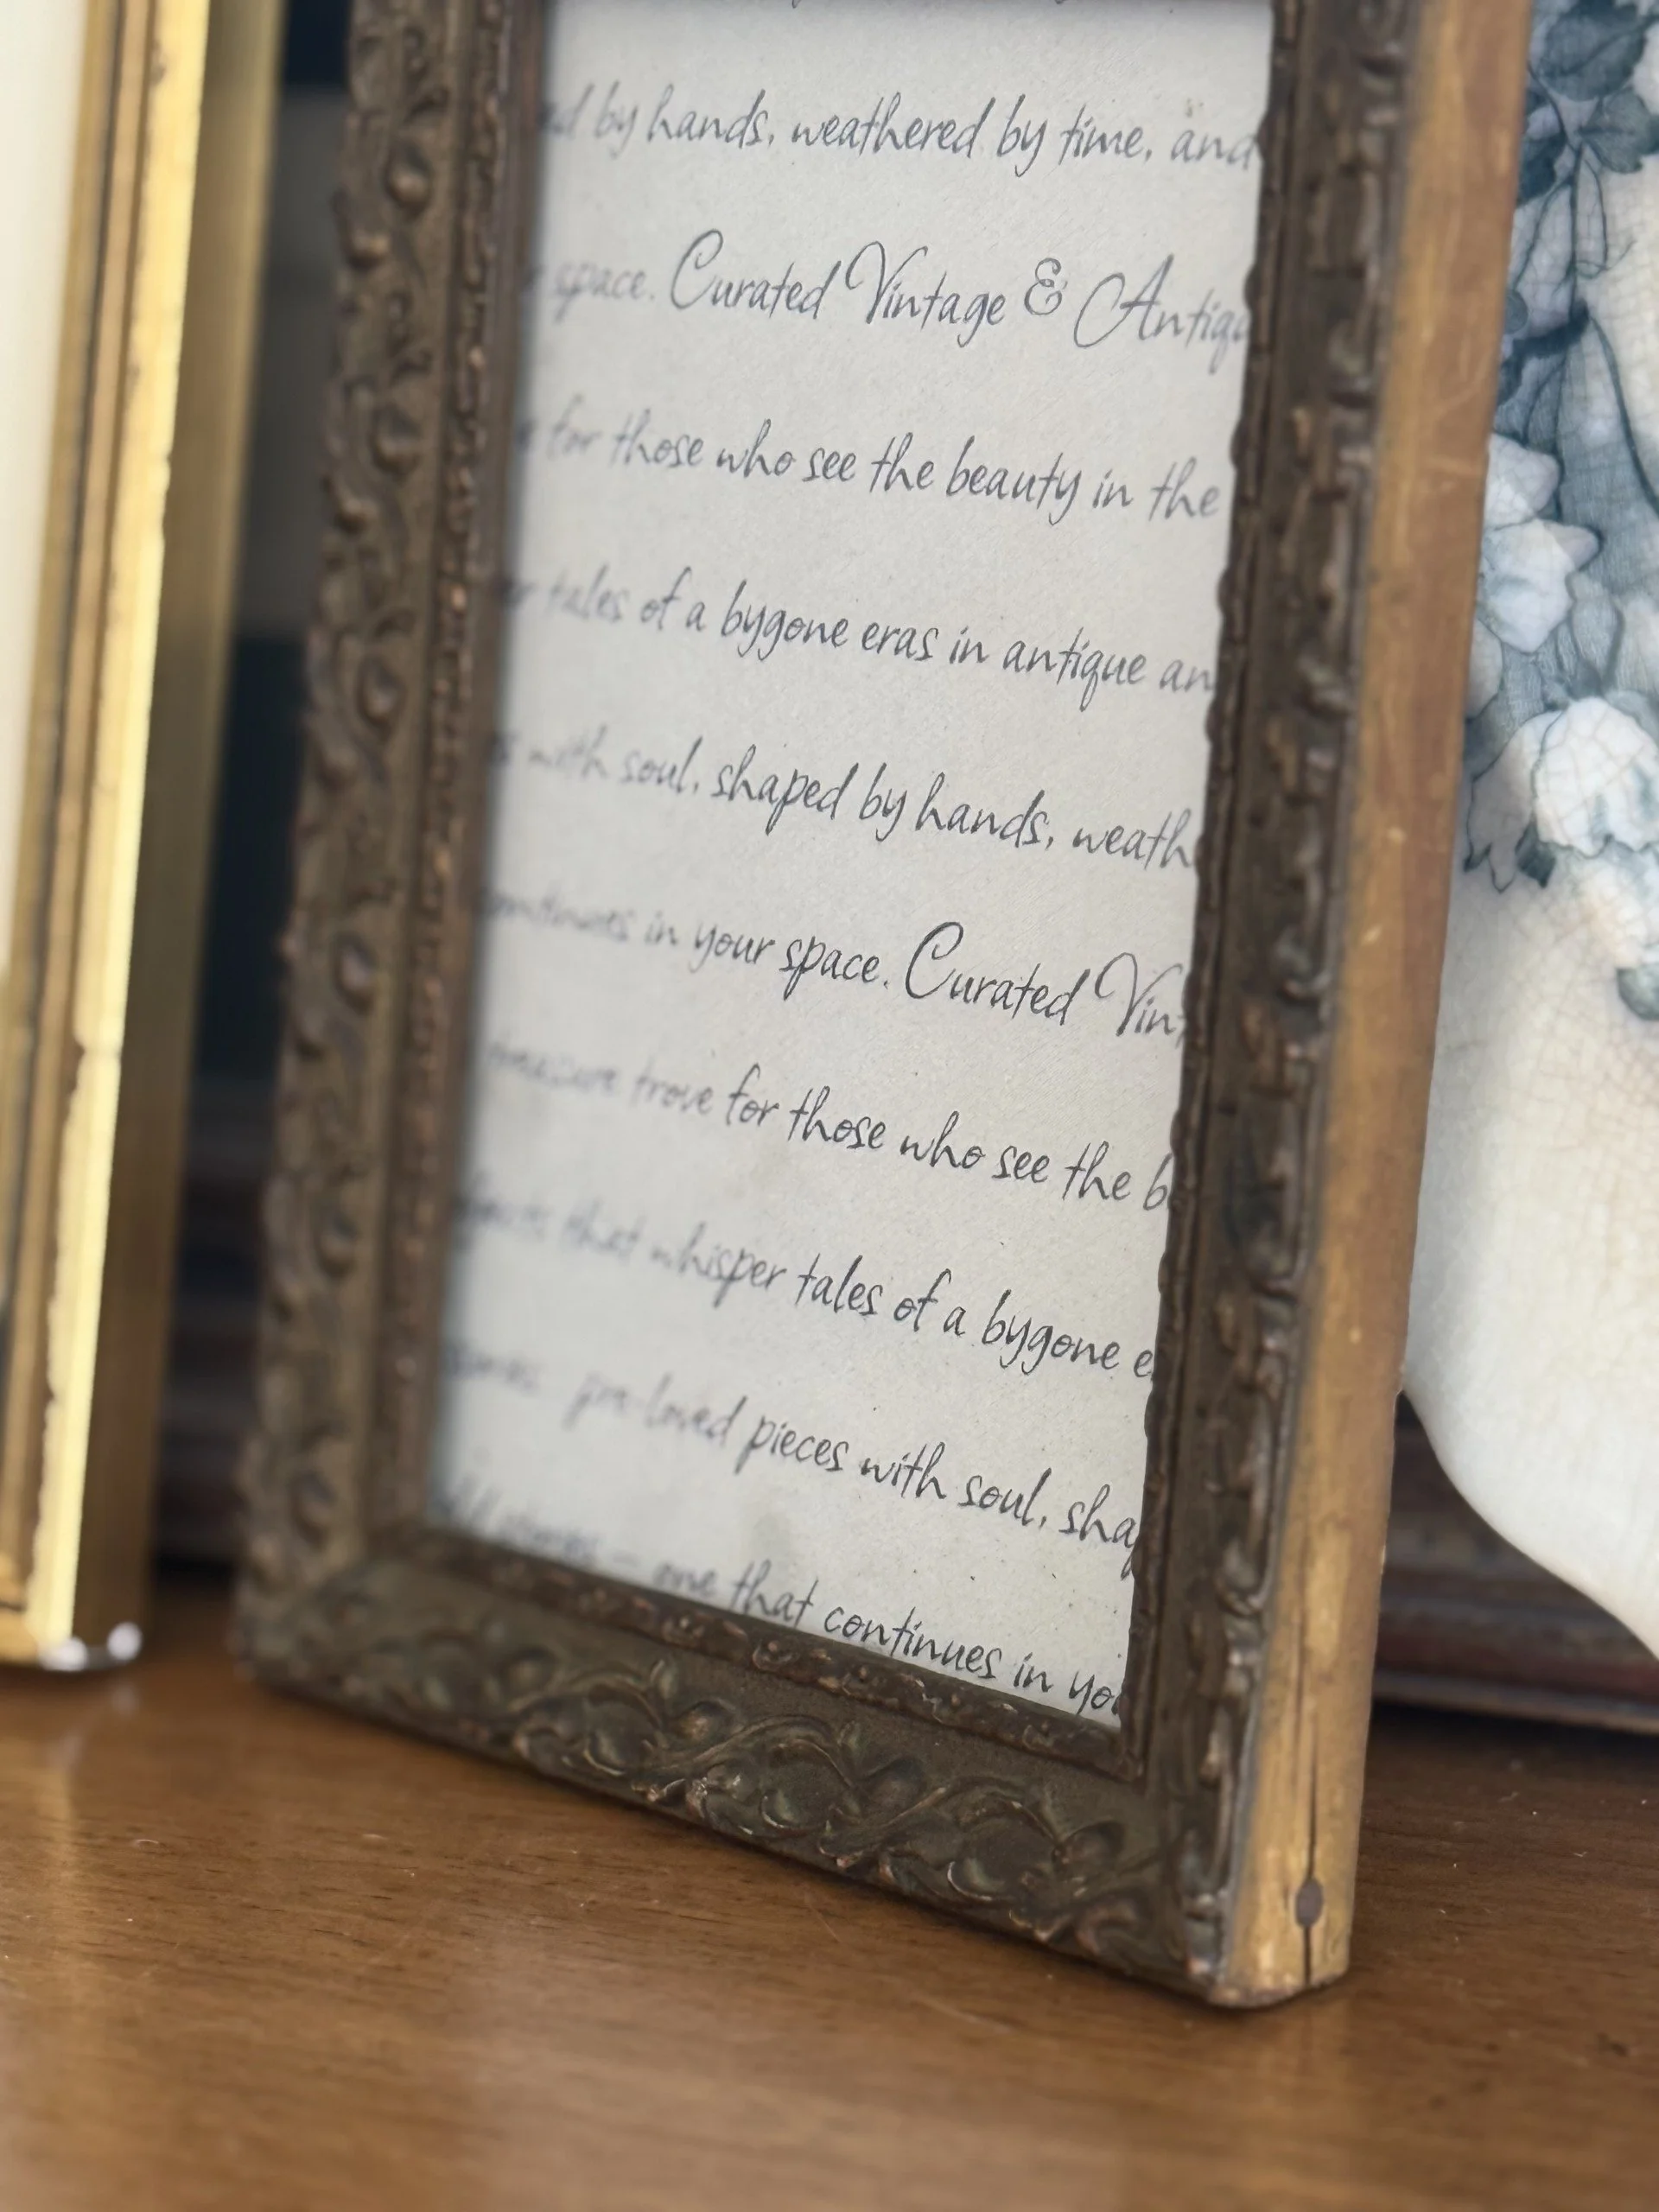 by hands, weathered by time, and
space. Curated Vintage & Antiq
for those who see the beauty in the
tales of a bygone eras in antique an
with soul, shaped by hands, weath
continues in your space. Curated Vin
treasure trove for those who see the b
that whisper tales of a bygone e
pre-loved pieces with soul, shap
one that continues in you